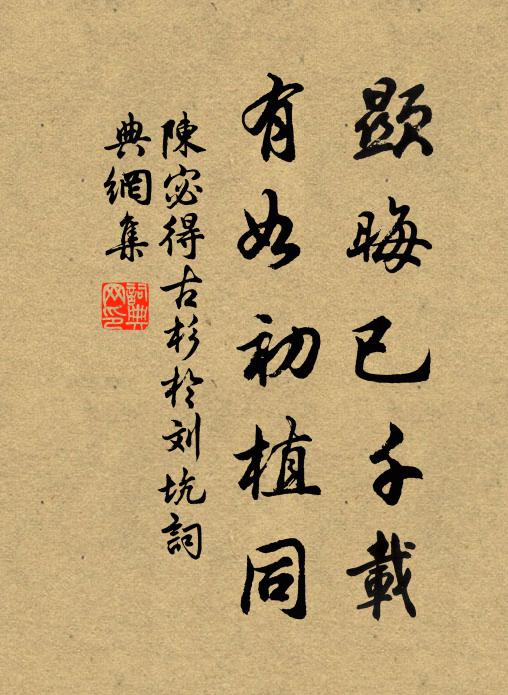 顯晦已千載
有如初植同
陳宓得古杉於刘坑詞
典網集
詞典
网印